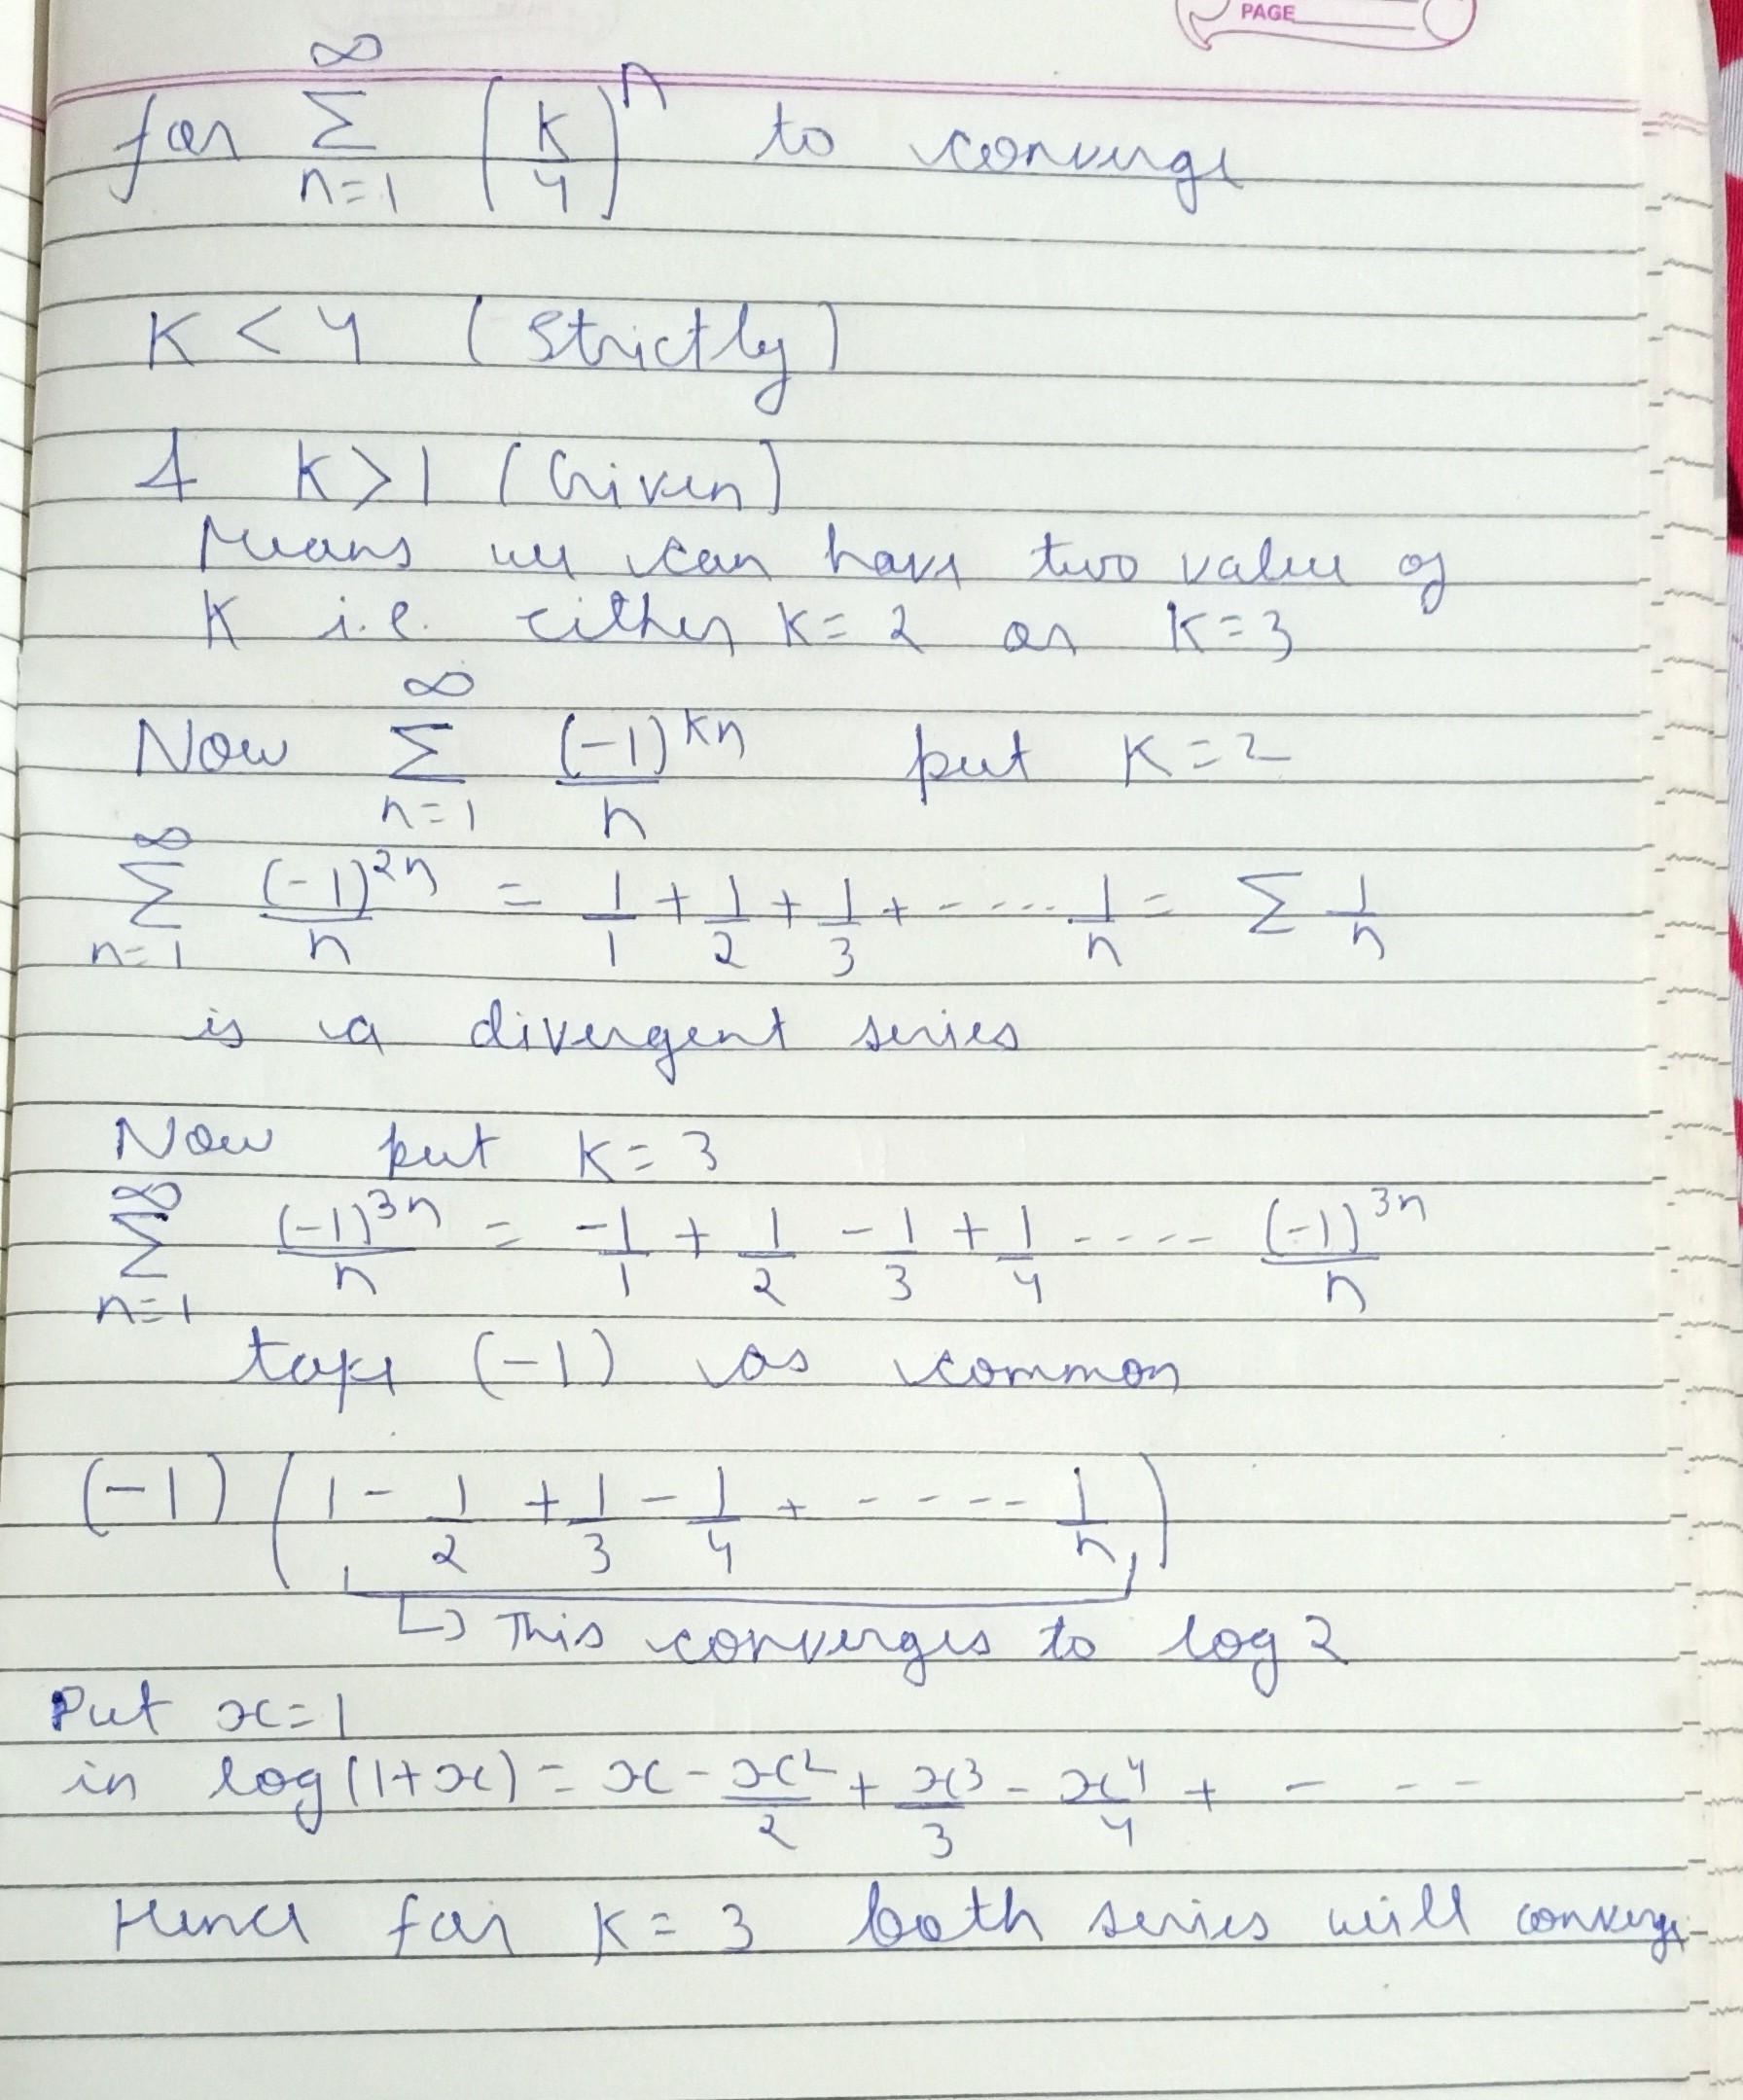 PAGE
for ∞ Σ n=1 (k/4)^n to converge
K < 4 (Strictly)
& K > 1 (Given)
Means we can have two value of
K i.e. either K = 2 or K = 3
Now ∞ Σ n=1 (-1)^kn / n put K = 2
∞ Σ n=1 (-1)^2n / n = 1/1 + 1/2 + 1/3 + ----. 1/n = Σ 1/n
is a divergent series
Now put K = 3
∞ Σ n=1 (-1)^3n / n = -1/1 + 1/2 - 1/3 + 1/4 ---- (-1)^3n / n
take (-1) as common
(-1) (1 - 1/2 + 1/3 - 1/4 + ----- 1/n)
↳ This converges to log 2
Put x=1
in log(1+x) = x - x²/2 + x³/3 - x⁴/4 + - - -
Hence for K = 3 both series will converge